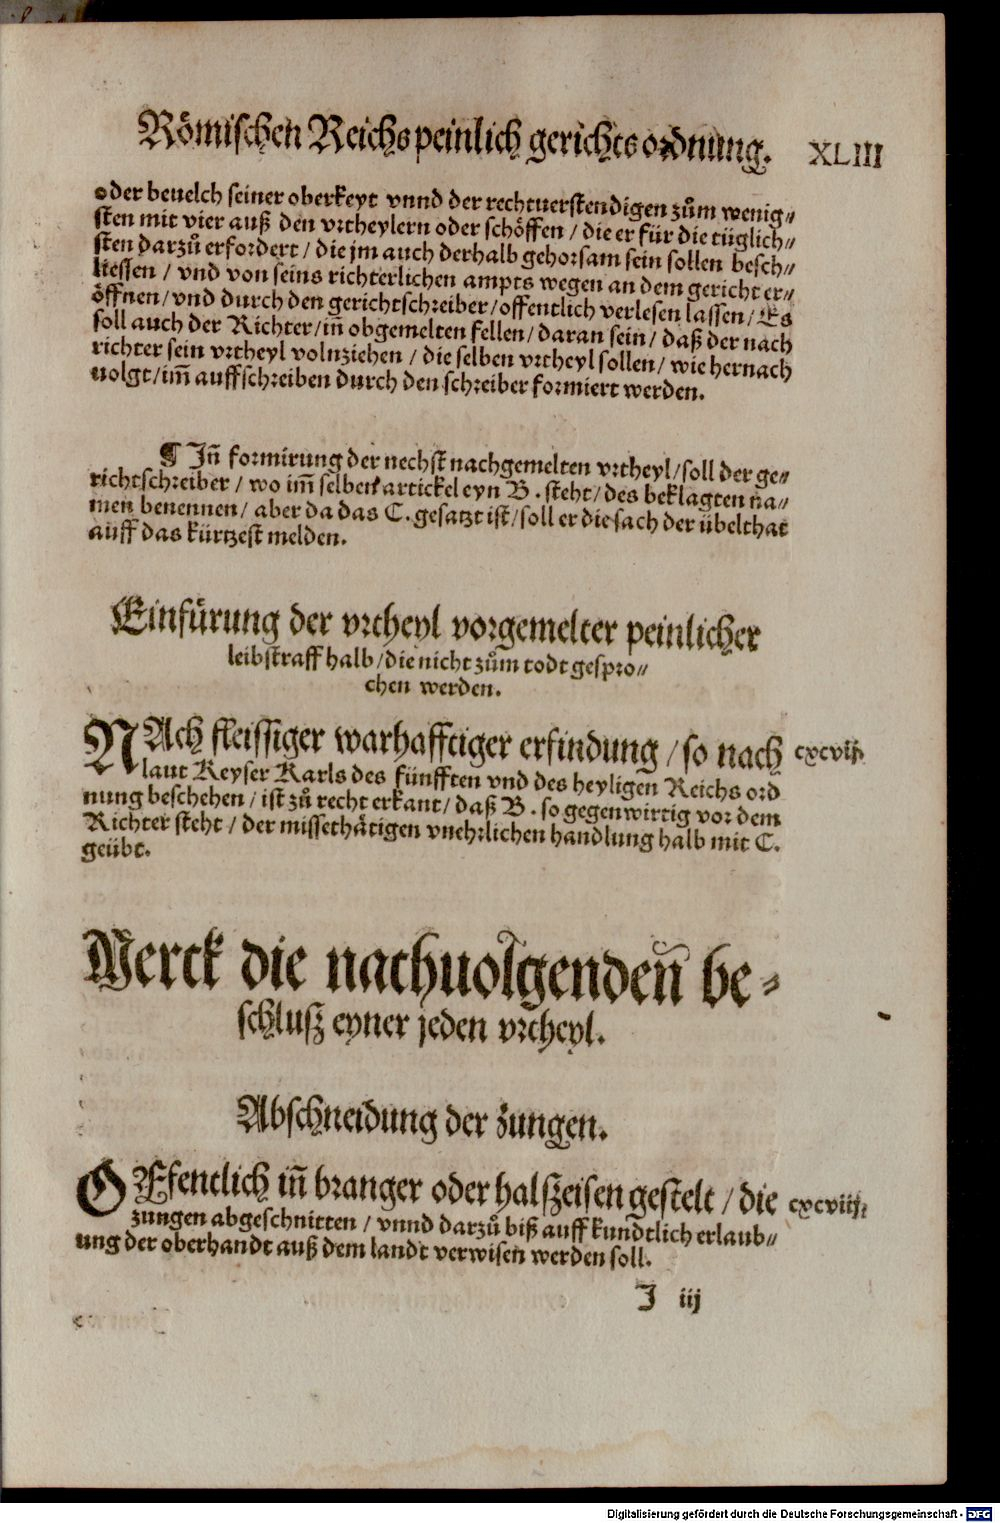 Römischen Reichs peinlich gerichts ordnung. XLIII
oder beuelch seiner oberkeyt vnnd der rechtuerstendigen zům wenig⸗
sten mit vier auß den vrtheylern oder schöffen / die er für die tüglich⸗
sten darzů erfordert / die jm auch derhalb gehorsam sein sollen besch⸗
liessen / vnd von seins richterlichen ampts wegen an dem gericht er⸗
öffnen / vnd durch den gerichtschreiber / offentlich verlesen lassen / Es
soll auch der Richter / iñ obgemelten fellen / daran sein / daß der nach
richter sein vrtheyl volnziehen / die selben vrtheyl sollen / wie hernach
uolgt / im̃ auffschreiben durch den schreiber formiert werden.
¶ Jñ formirung der nechst nachgemelten vrtheyl / soll der ge⸗
richtschreiber / wo im̃ selben artickel eyn B. steht / des beklagten na⸗
men benennen / aber da das C. gesatzt ist / soll er die sach der übelthat
auff das kürtzest melden.
Einfürung der vrtheyl vorgemelter peinlicher
leibstraff halb / die nicht zům todt gespro⸗
chen werden.
NAch fleissiger warhafftiger erfindung / so nach cxcvij.
laut Keyser Karls des fünfften vnd des heyligen Reichs ord
nung beschehen / ist zů recht erkant / daß B. so gegenwirtig vor dem
Richter steht / der missethätigen vnehrlichen handlung halb mit C.
geübt.
Merck die nachuolgendeñ be⸗
schlußz eyner jeden vrtheyl.
Abschneidung der zungen.
OEffentlich iñ branger oder halßeisen gestelt / die cxcviij.
zungen abgeschnitten / vnnd darzů biß auff kundtlich erlaub⸗
ung der oberhandt auß dem landt verwisen werden soll.
J iij
Digitalisierung gefördert durch die Deutsche Forschungsgemeinschaft - DFG